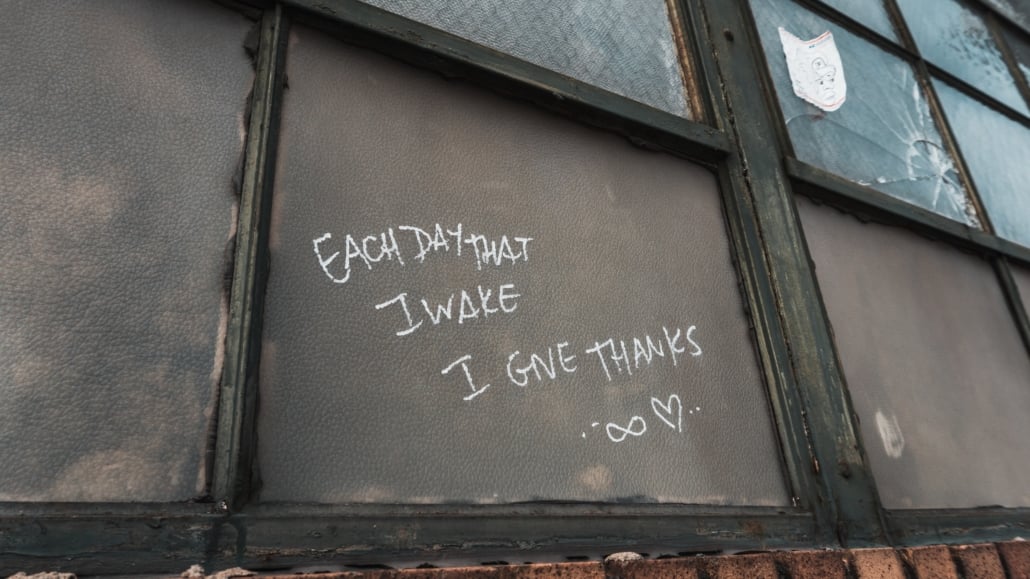 EACH DAY THAT
I WAKE
I GIVE THANKS